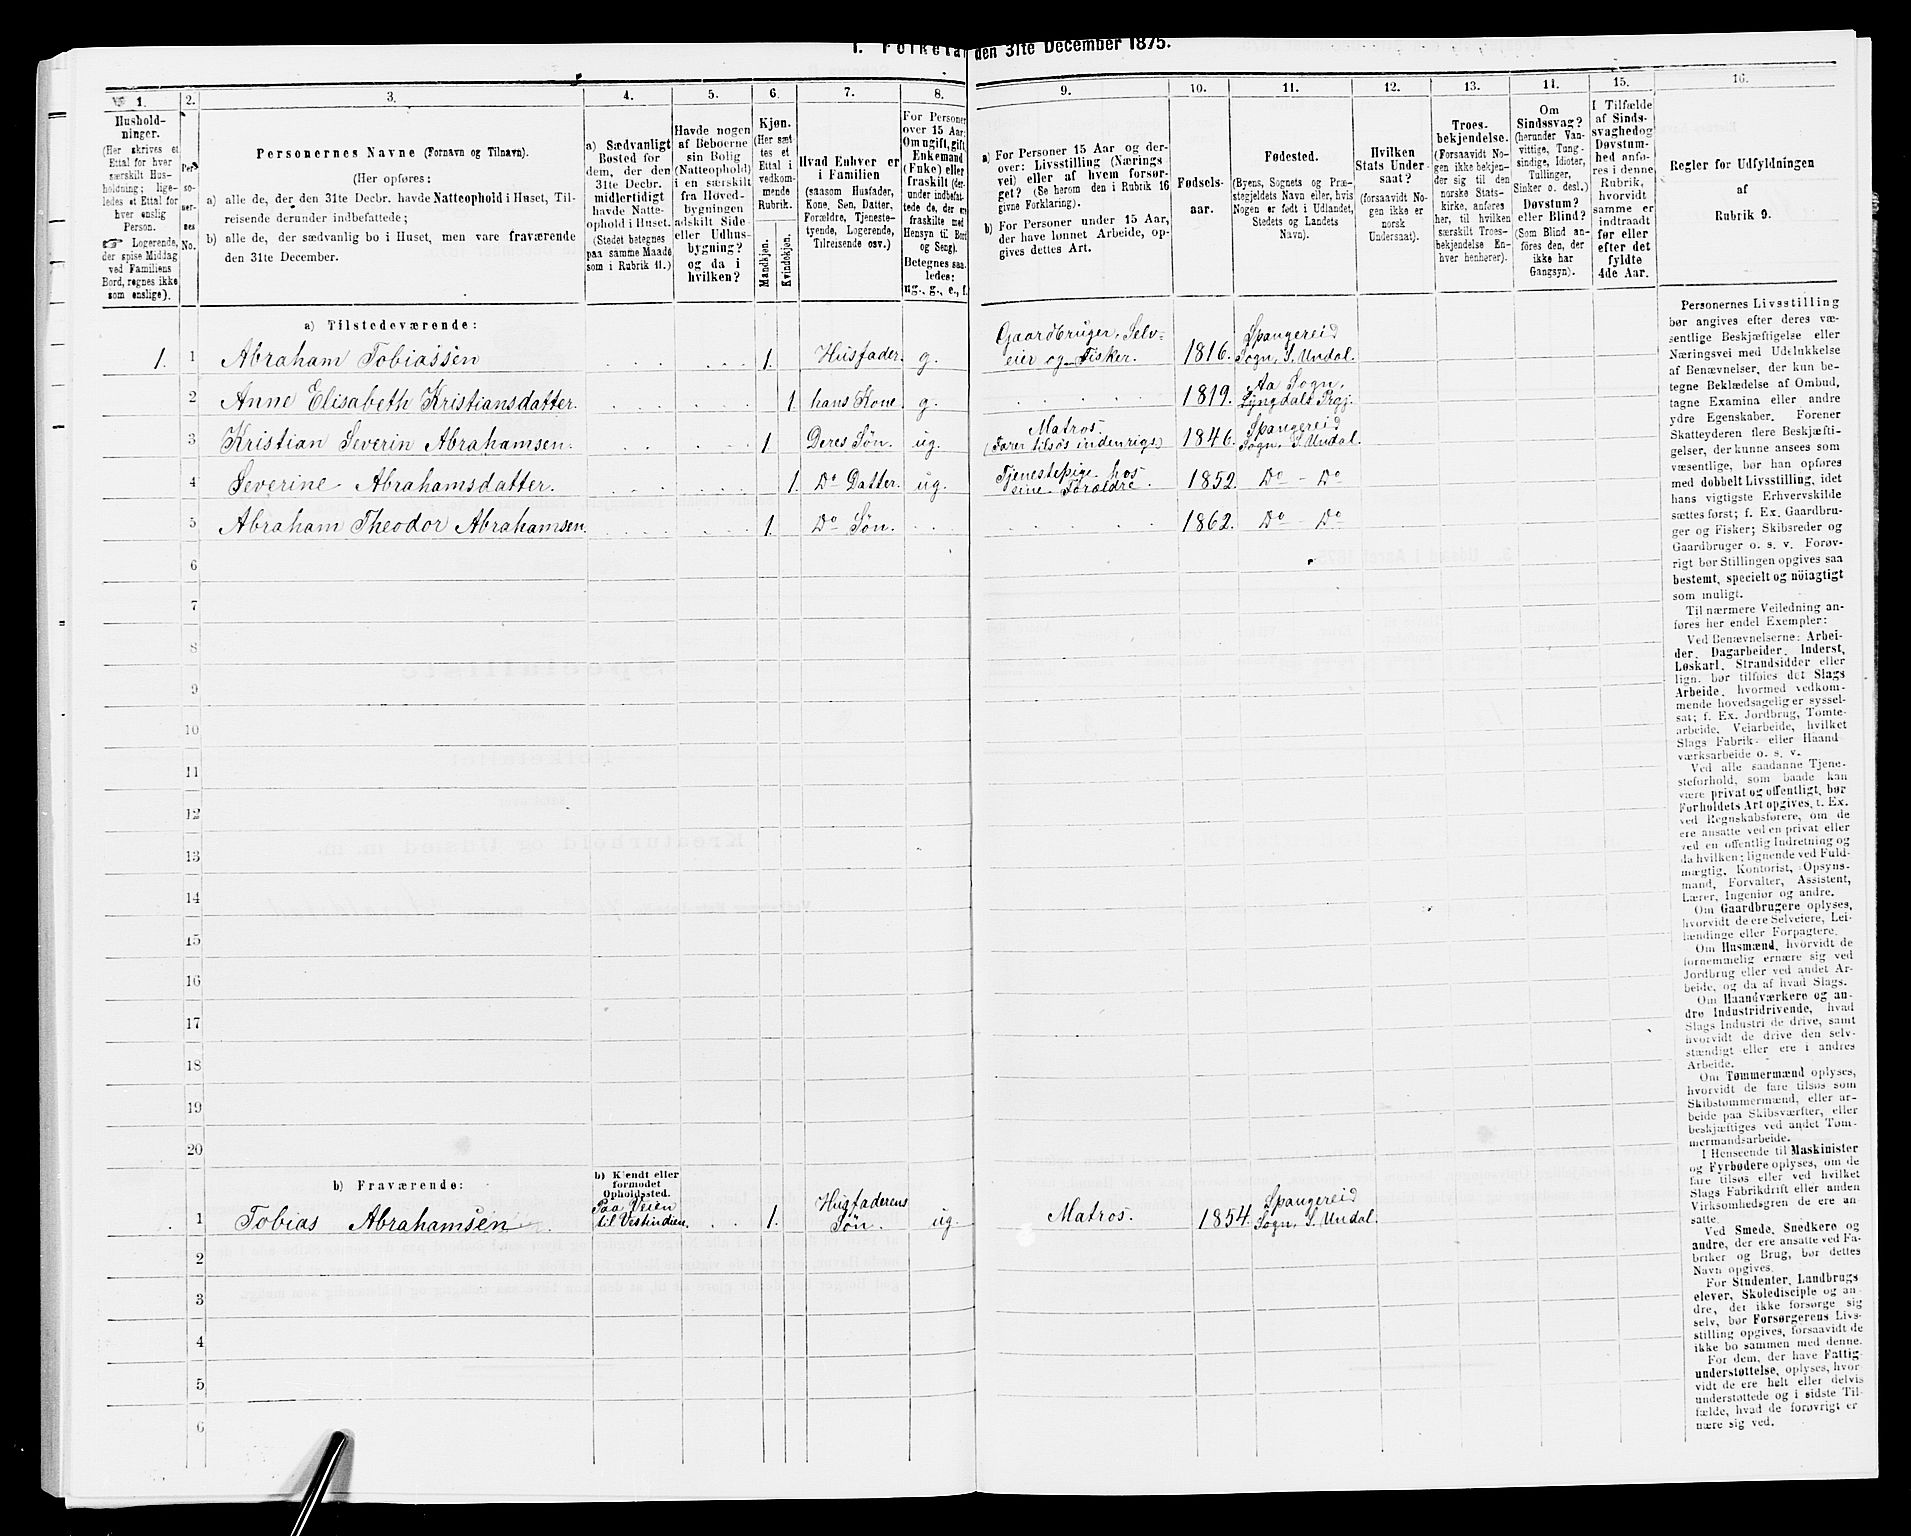 den 31te December 1875.
1.
2.
3.
4.
5.
6.
7.
8.
9.
10.
11.
12.
13.
14.
15.
16.
Hushold-
ninger.
(Her skrives et
Ettal for hver
særskilt Hus-
holdning; lige-
ledes et Ettal for
hver enslig
Person.
☞ Logerende,
der spise Middag
ved Familiens
Bord, regnes ikke
som enslige).
Per-
so-
ner-
nes
No.
Personernes Navne (Fornavn og Tilnavn).
(Her opføres:
a) alle de, der den 31te Decbr. havde Natteophold i Huset, Til-
reisende derunder indbefattede;
b) alle de, der sædvanlig bo i Huset, men vare fraværende
den 31te December.
a) Sædvanligt
Bosted for
dem, der den
31te Decbr.
midlertidigt
havde Natte-
ophold i Huset.
(Stedet betegnes
paa samme Maade
som i Rubrik 11.)
Havde nogen
af Beboerne
sin Bolig
(Natteophold)
i en særskilt
fra Hoved-
bygningen
adskilt Side-
eller Udhus-
bygning?
og da i
hvilken?
Kjøn.
(Her sæt-
tes et
Ettal i
vedkom-
mende
Rubrik.
Mandkjøn.
Kvindekjøn.
Hvad Enhver er
i Familien
(saasom Husfader,
Kone, Søn, Datter,
Forældre, Tjeneste-
tyende, Logerende,
Tilreisende osv.)
For Personer
over 15 Aar:
Om ugift, gift,
Enkemand
(Enke) eller
fraskilt (der-
under indbefat-
tede de, der ere
fraskilte med
Hensyn til Bord
og Seng).
Betegnes saa-
ledes:
ug., g., e., f.
a) For Personer 15 Aar og der-
over: Livsstilling (Nærings
vei) eller af hvem forsør-
get? (Se herom den i Rubrik 16
givne Forklaring.)
b) For Personer under 15 Aar,
der have lønnet Arbeide, op-
gives dettes Art.
Fødsels-
aar.
Fødested.
(Byens, Sognets og Præ-
stegjeldets Navn eller, hvis
Nogen er født i Udlandet,
Stedets og Landets
Navn).
Hvilken
Stats Under-
saat?
(forsaavidt No-
gen ikke er
norsk
Undersaat).
Troes-
bekjendelse.
(Forsaavidt No-
gen ikke bekjen-
der sig til den
norske Stats-
kirke, anføres
her, til hvilken
særskilt Troes-
bekjendelse En-
hver henhører).
Om
Sindssvag?
(herunder Van-
vittige, Tung-
sindige, Idioter,
Tullinger,
Sinker o. desl.)
Døvstum?
eller Blind?
(Som Blind an-
føres den, der
ikke har
Gangsyn).
I Tilfælde
af Sinds-
svaghed og
Døvstum-
hed anfø-
res i denne
Rubrik,
hvorvidt
samme er
indtraadt
før eller
efter det
fyldte
4de Aar.
Regler for Udfyldningen
af
Rubrik 9.
a) Tilstedeværende:
1. 1 Abraham Tobiassen 1. Husfader. g. Gaardbruger, Selv-
eier og Fisker. 1816. Spangereid
Sogn, S. Undal.
2 Anne Elisabeth Kristiansdatter. 1. hans Kone. g. 1819. Aa Sogn,
Lyngdals Prgj.
3 Kristian Severin Abrahamsen. 1 Deres Søn. ug. Matros.
(Farer tilsøs indenrigs) 1846. Spangereid
Sogn, S. Undal.
4 Severine Abrahamsdatter. 1. Do Datter. ug. Tjenestepige hos
sine Forældre. 1852. Do - Do
5 Abraham Theodor Abrahamsen. 1. Do Søn. 1862. Do - Do
6
7
8
9
10
11
12
13
14
15
16
17
18
19
20
b) Fraværende:
b) Kjendt eller
formodet
Opholdssted.
1 Tobias Abrahamsen Paa Veien
til Vestindien. 1. Husfaderens
Søn. ug. Matros. 1854. Spangereid
Sogn, S. Undal.
2
3
4
5
6
Personernes Livsstilling
bør angives efter deres væ-
sentlige Beskjæftigelse eller
Næringsvei med Udelukkelse
af Benævnelser, der kun be-
tegne Beklædelse af Ombud,
tagne Examina eller andre
ydre Egenskaber. Forener
Skatteyderen flere Beskjæfti-
gelser, der kunne ansees som
væsentlige, bør han opføres
med dobbelt Livsstilling, idet
hans vigtigste Erhvervskilde
sættes først; f. Ex. Gaardbru-
ger og Fisker; Skibsreder og
Gaardbruger o. s. v. Forøv-
rigt bør Stillingen opgives saa
bestemt, specielt og nöiagtigt
som muligt.
Til nærmere Veiledning an-
føres her endel Exempler:
Ved Benævnelserne: Arbei-
der, Dagarbeider, Inderst,
Løskarl, Strandsidder eller
lign. bør tilføies det Slags
Arbeide, hvormed vedkom-
mende hovedsagelig er syssel-
sat; f. Ex. Jordbrug, Tomte-
arbeide, Veiarbeide, hvilket
Slags Fabrik- eller Haand-
værksarbeide o. s. v.
Ved alle saadanne Tjene-
steforhold, som baade kan
være privat og offentligt, bør
Forholdets Art opgives, t. Ex.
ved Regnskabsførere, om de
ere ansatte ved en privat eller
ved en offentlig Indretning og
da hvilken; lignende ved Fuld-
mægtig, Kontorist, Opsyns-
mand, Forvalter, Assistent,
Lærer, Ingeniør og andre.
Om Gaardbrugere oplyses,
hvorvidt de ere Selveiere, Lei-
lændinge eller Forpagtere.
Om Husmænd, hvorvidt de
fornemmelig ernære sig ved
Jordbrug eller ved andet Ar-
beide, og da af hvad Slags.
Om Haandværkere og an-
dre Industridrivende, hvad
Slags Industri de drive, samt
hvorvidt de drive den selv-
stændigt eller ere i andres
Arbeide.
Om Tømmermænd oplyses,
hvorvidt de fare tilsøs som
Skibstømmermænd, eller ar-
beide paa Skibsværfter, eller
beskjæftiges ved andet Tøm-
mermandsarbeide.
I Henseende til Maskinister
og Fyrbødere oplyses, om de
fare tilsøs eller ved hvilket
Slags Fabrikdrift eller anden
Virksomhedsgren de ere an-
satte.
Ved Smede, Snedkere og
andre, der ere ansatte ved Fa-
briker og Brug, bør dettes
Navn opgives.
For Studenter, Landbrugs
elever, Skoledisciple og an-
dre, der ikke forsørge sig
selv, bør Forsørgerens Livs-
stilling opgives, forsaavidt de
ikke bo sammen med denne.
For dem, der have Fattig-
understøttelse, oplyses, hvor-
vidt de ere helt eller delvis
understøttede og i sidste Til-
fælde, hvad de forøvrigt er
nære sig ved.